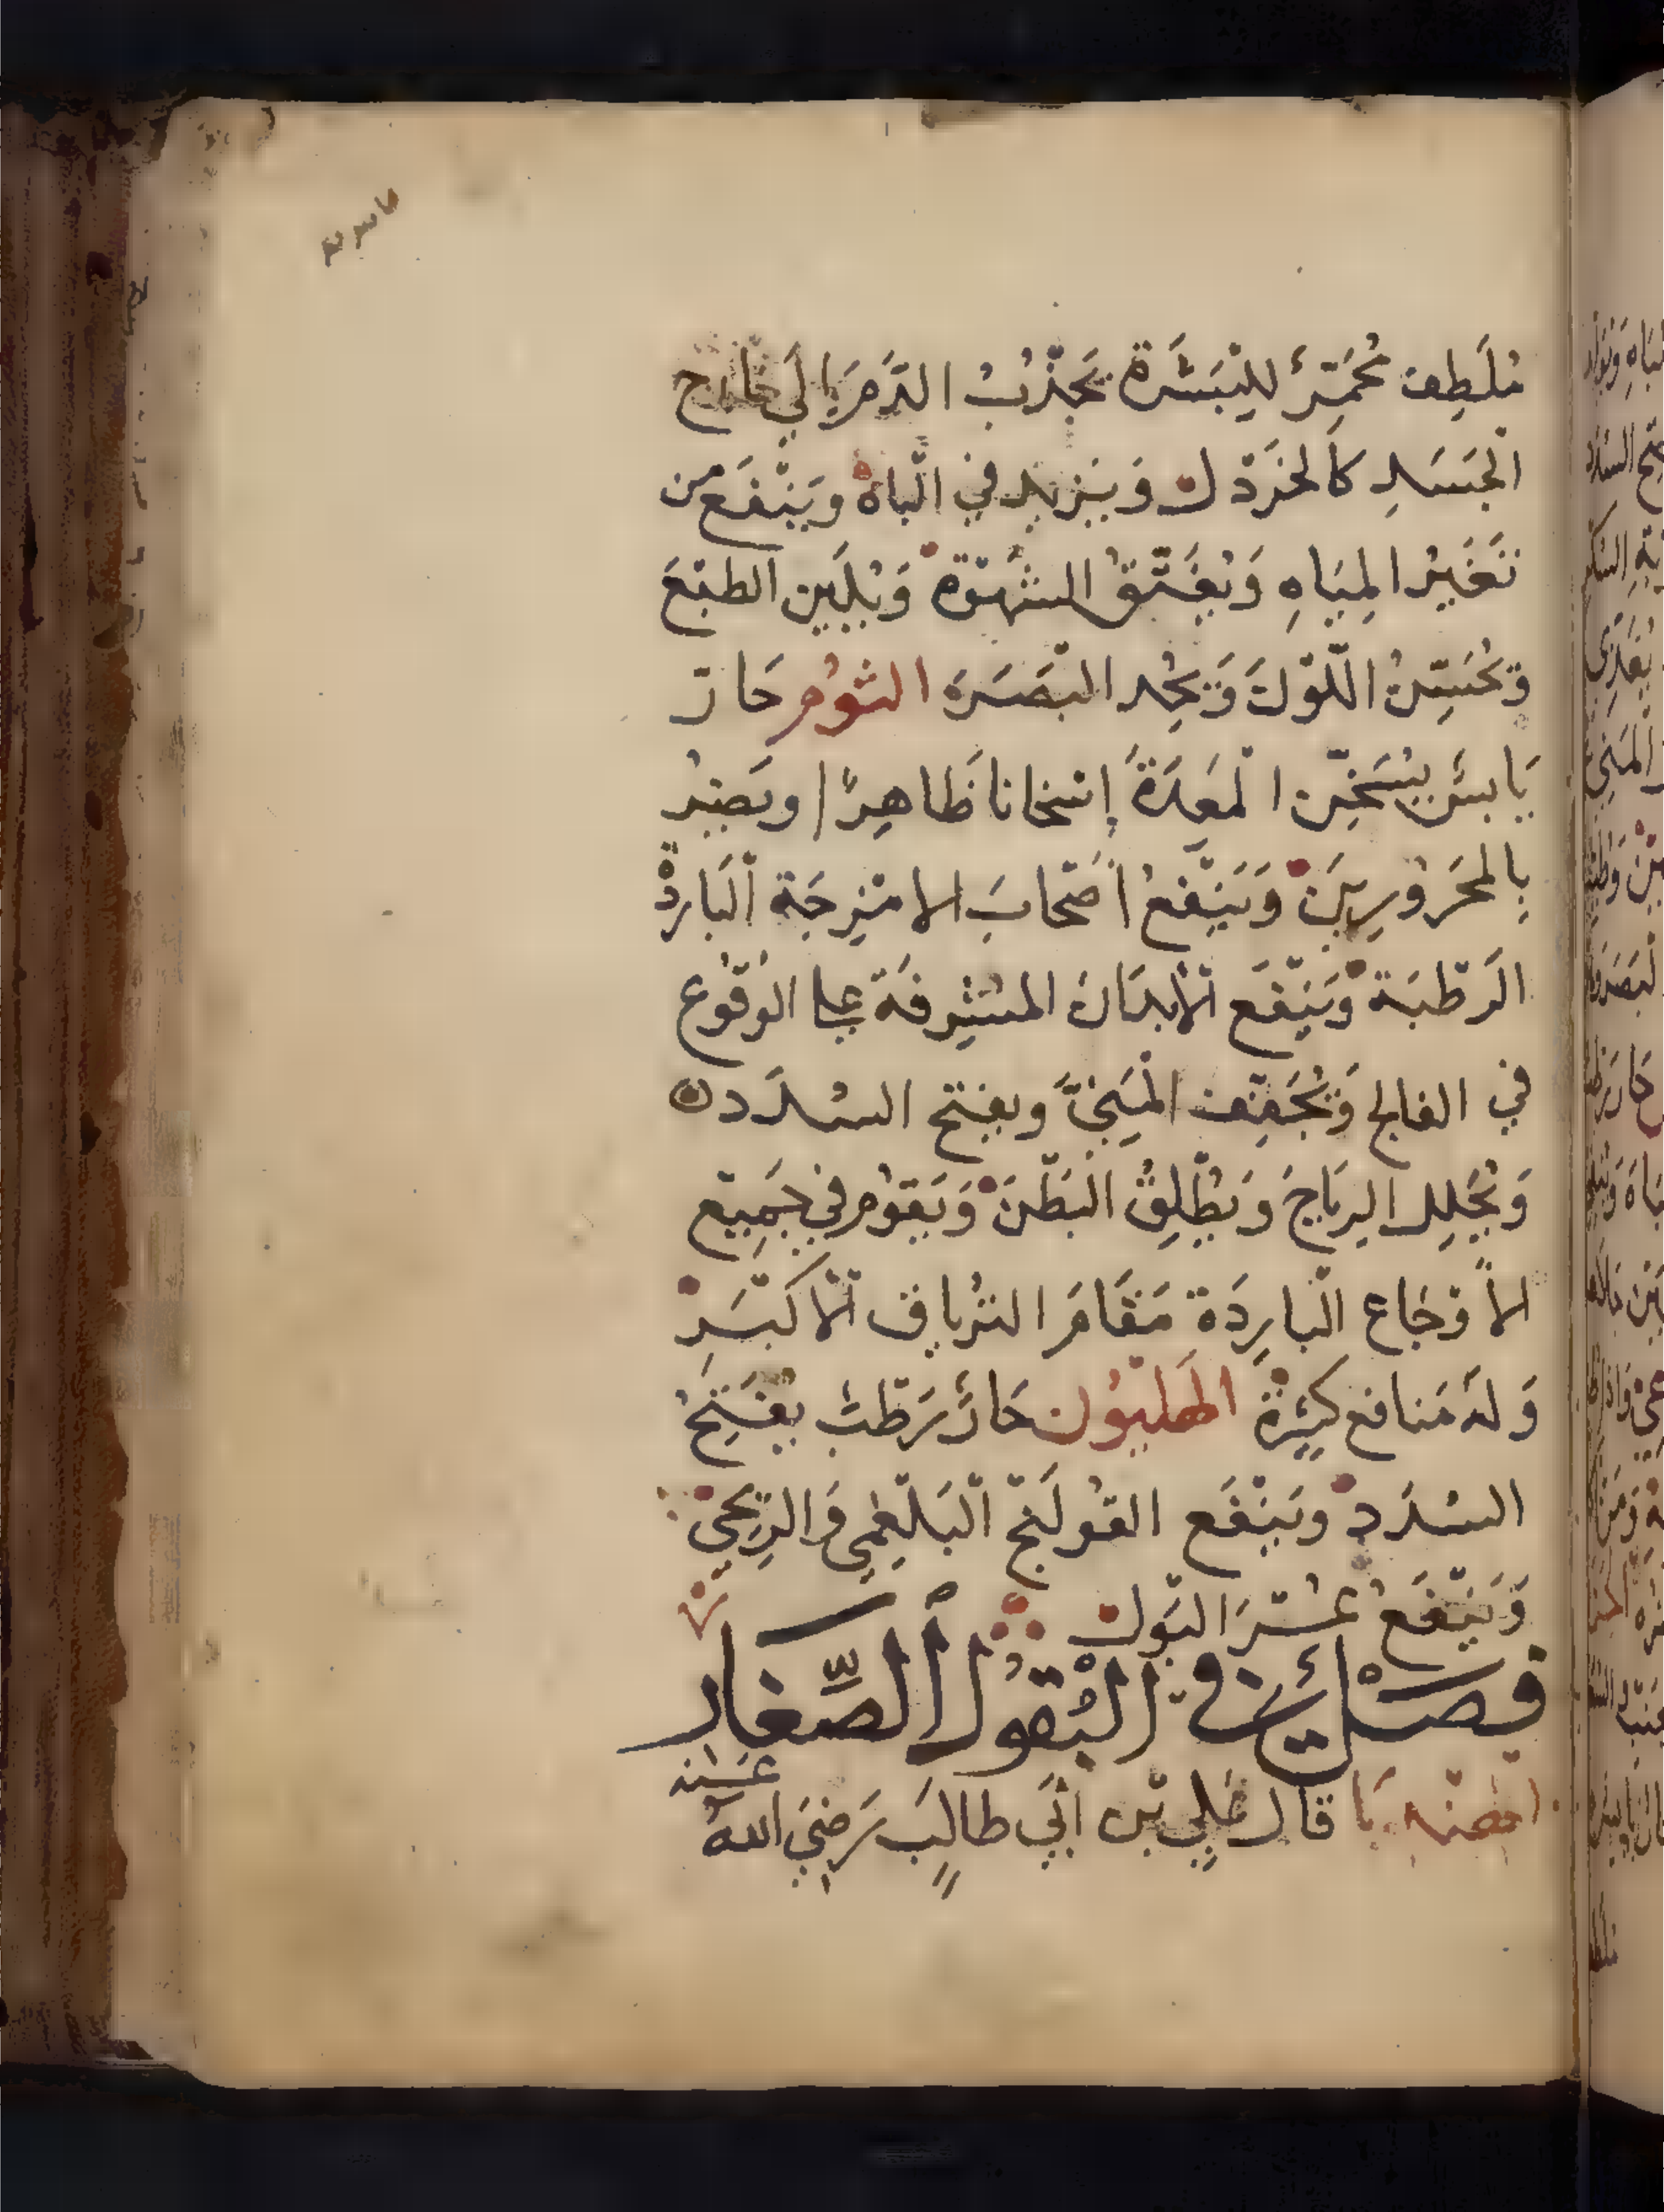 مُلَطِف مُحَمِّرٌ لِلْبَشَرَة يَجْذِبُ الدَّمَ إِلَى خَارِج
الْجَسَدِ كَالخَرْدَل وَيَزِيد فِي الْبَاهْ وَيَنْفَع من
تَغَيُّر المِيَاهِ وَيُفَتِّقُ الشَّهْوَة وَيُلَيِن الطَبْعَ
وَيُحَسِّنُ اللَّوْنَ وَيُحِد الْبَصَرَه الثُوُم حَارّ
يَابسٌ يُسَخِّن الْمَعِدَةَ إِسْخانا ظَاهِرًا وَيَضُرُ
بِالمَحْرُورِينَ وَيَنْفَعُ أَصْحَابَ الامْزِجَة الْبَارِدْة
الرَطْبَة وَيَنْفَع الْأَبْدَانَ المُشْرِفَة على الوُقُوع
في الفالج وَيُجَفِّف الْمَنِيَّ ويفتح السُدَد
وَيُحَلِل الرِيَاحَ وَيُطْلِقُ الْبَطْنَ وَيَقُوُم فِي جَمِيْع
الأَوْجَاع الْبَارِدَة مَقَامَ التِرْيَاق الْأَكْبَر
وَلَهُ مَنافع كَثِيرَةٌ الهَلْيُوْن حَارٌ رَطْبٌ يُفَتِحُ
السُدَدْ وَيَنْفَع القُولَنْج الْبَلْغِمِي وَالرِيحي
وَيَنْفَعُ عُسْرَ الْبَول
فَصْلٌ فِي الْبُقُول الصِّغَار
الهندبا قال عَلِي بْن أَبِي طَالِبٍ رَضِيَ اللهُ
عَنه